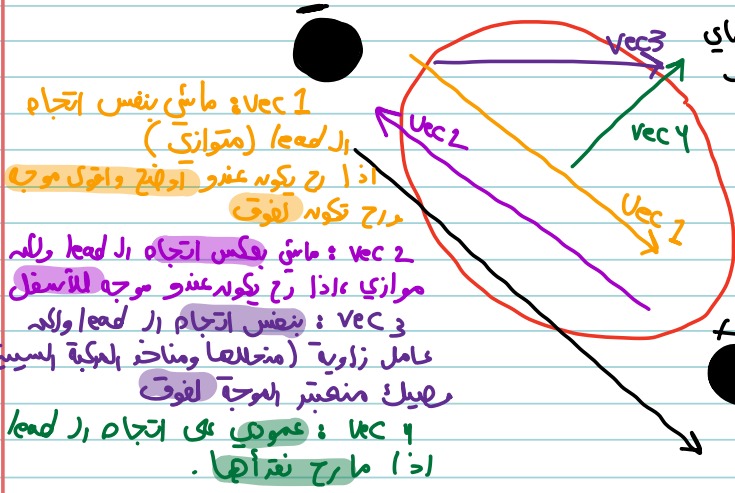 Vec3
Vec 2
Vec 4
Vec 1
Vec 1: ماشي بنفس اتجاه
الـ lead (متوازي)
اذا رح يكون عندو اوضح واقوى موجه
ورح تكون لفوق
Vec 2: ماشي بعكس اتجاه الـ lead ولكن
موازي، اذا رح يكون عندو موجه للأسفل
Vec 3: بنفس اتجاه الـ lead ولكن
عامل زاوية (منحللها ومناخد المركبة السينية
وهيك منعتبر الموجة لفوق
Vec 4: عمودي على اتجاه الـ lead
اذا ما رح نقرأها.